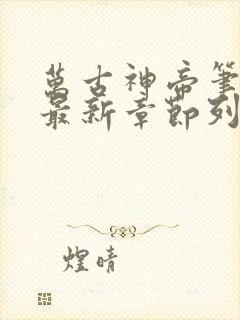 萬古神帝筆
最新章節列
煌晴